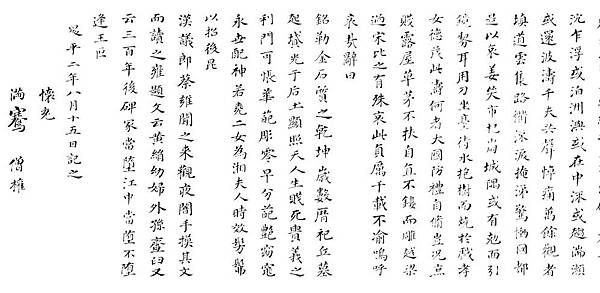 沉乍浮或泊洲嶼或在中流或趨湍瀨
或還波濤千夫失聲悼痛萬餘觀者
填道雲集路衢泣淚掩涕驚慟國都
是以哀姜哭市杞崩城隅或有剋面引
鏡剺耳用刀坐臺待水抱樹而燒於戲孝
女德茂此儔何者大國防禮自脩豈況庶
賤露屋草茅不扶自直不鏤而雕越梁
過宋比之有殊哀此貞厲千載不渝嗚呼
哀哉辭曰
銘勒金石質之乾坤歲數曆祀丘墓
起墳光于后土顯照天人生賤死貴義之
利門何悵華落彫零早分葩艷窈窕
永世配神若堯二女為湘夫人時效髣髴
以招後昆
漢議郎蔡雍聞之來觀夜闇手摸其文
而讀之雍題文云黃絹幼婦外孫齏臼又
云三百年後碑冢當墮江中當墮不墮
逢王叵
昇平二年八月十五日記之
懷充
滿騫 僧權